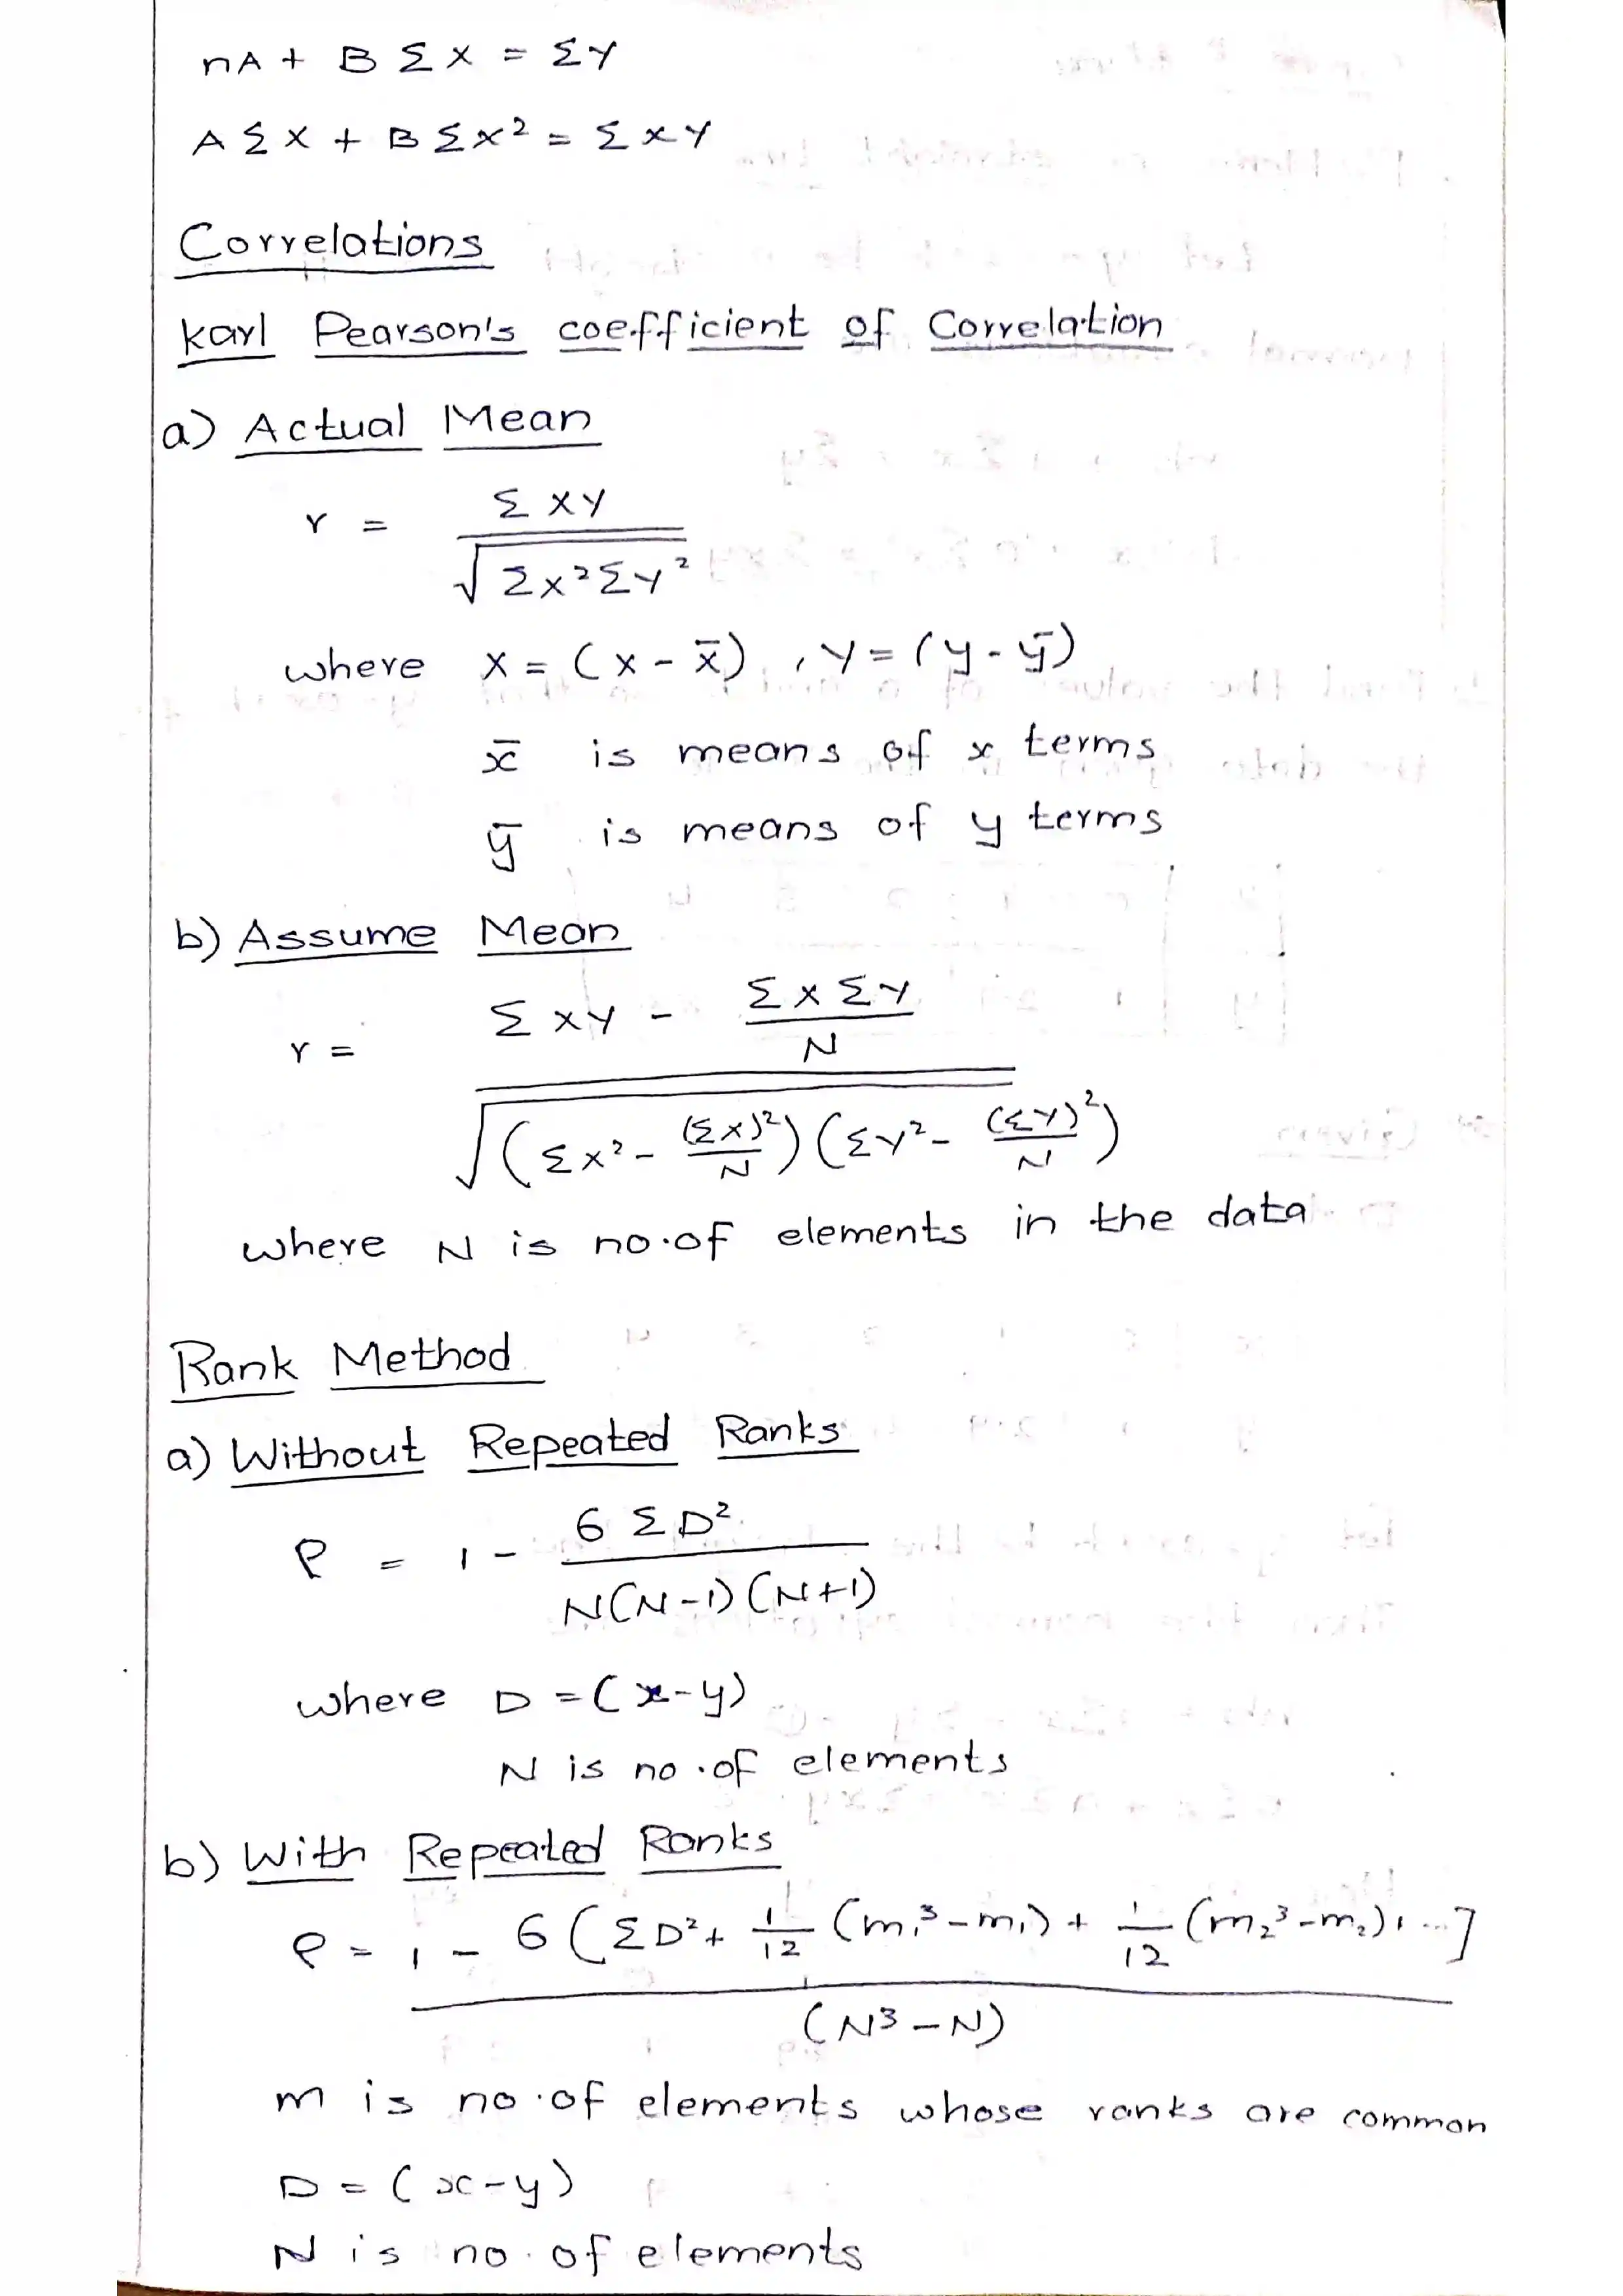 nA + B Σ X = ΣY
A Σ X + B Σ X² = Σ XY
Correlations
Karl Pearson's coefficient of Correlation
a) Actual Mean
r = Σ XY / √ΣX²ΣY²
where X = (x - x̄), Y = (y - ȳ)
x̄ is means of x terms
ȳ is means of y terms
b) Assume Mean
r = Σ XY - ΣXΣY/N / √(ΣX² - (ΣX)²/N)(ΣY² - (ΣY)²/N)
where N is no. of elements in the data
Rank Method
a) Without Repeated Ranks
ρ = 1 - 6 ΣD² / N(N-1)(N+1)
where D = (x-y)
N is no. of elements
b) With Repeated Ranks
ρ = 1 - 6 (ΣD² + 1/12 (m₁³-m₁) + 1/12 (m₂³-m₂), ...] / (N³-N)
m is no. of elements whose ranks are common
D = (x-y)
N is no. of elements